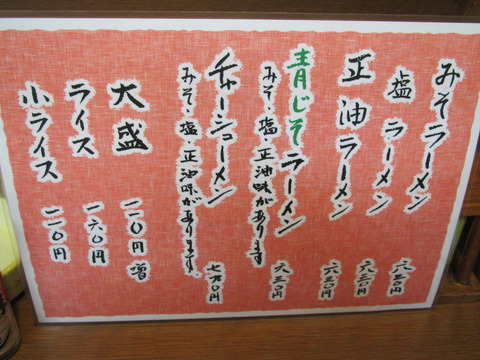 みそラーメン 六三〇円
塩ラーメン 六三〇円
正油ラーメン 六三〇円
青じそラーメン 六三〇円
みそ・塩・正油味があります
チャーシューメン 七九〇円
みそ・塩・正油味があります。
大盛 一一〇円増
ライス 一六〇円
小ライス 一一〇円